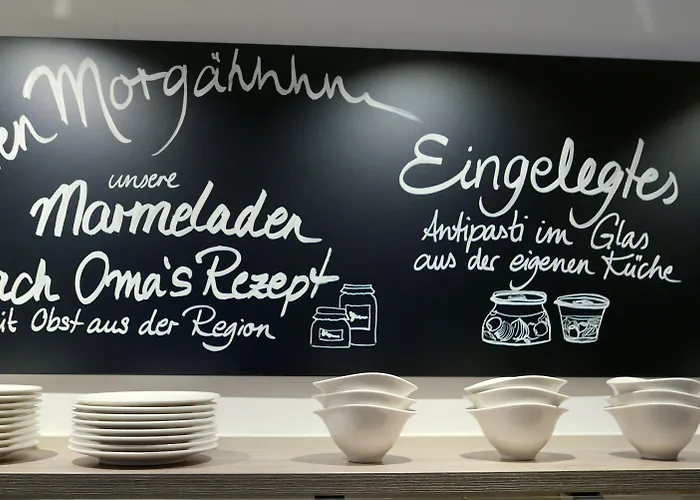 en Morgähhhn
unsere
Marmeladen
ach Oma's Rezept
it Obst aus der Region
Eingelegtes
Antipasti im Glas
aus der eigenen Küche